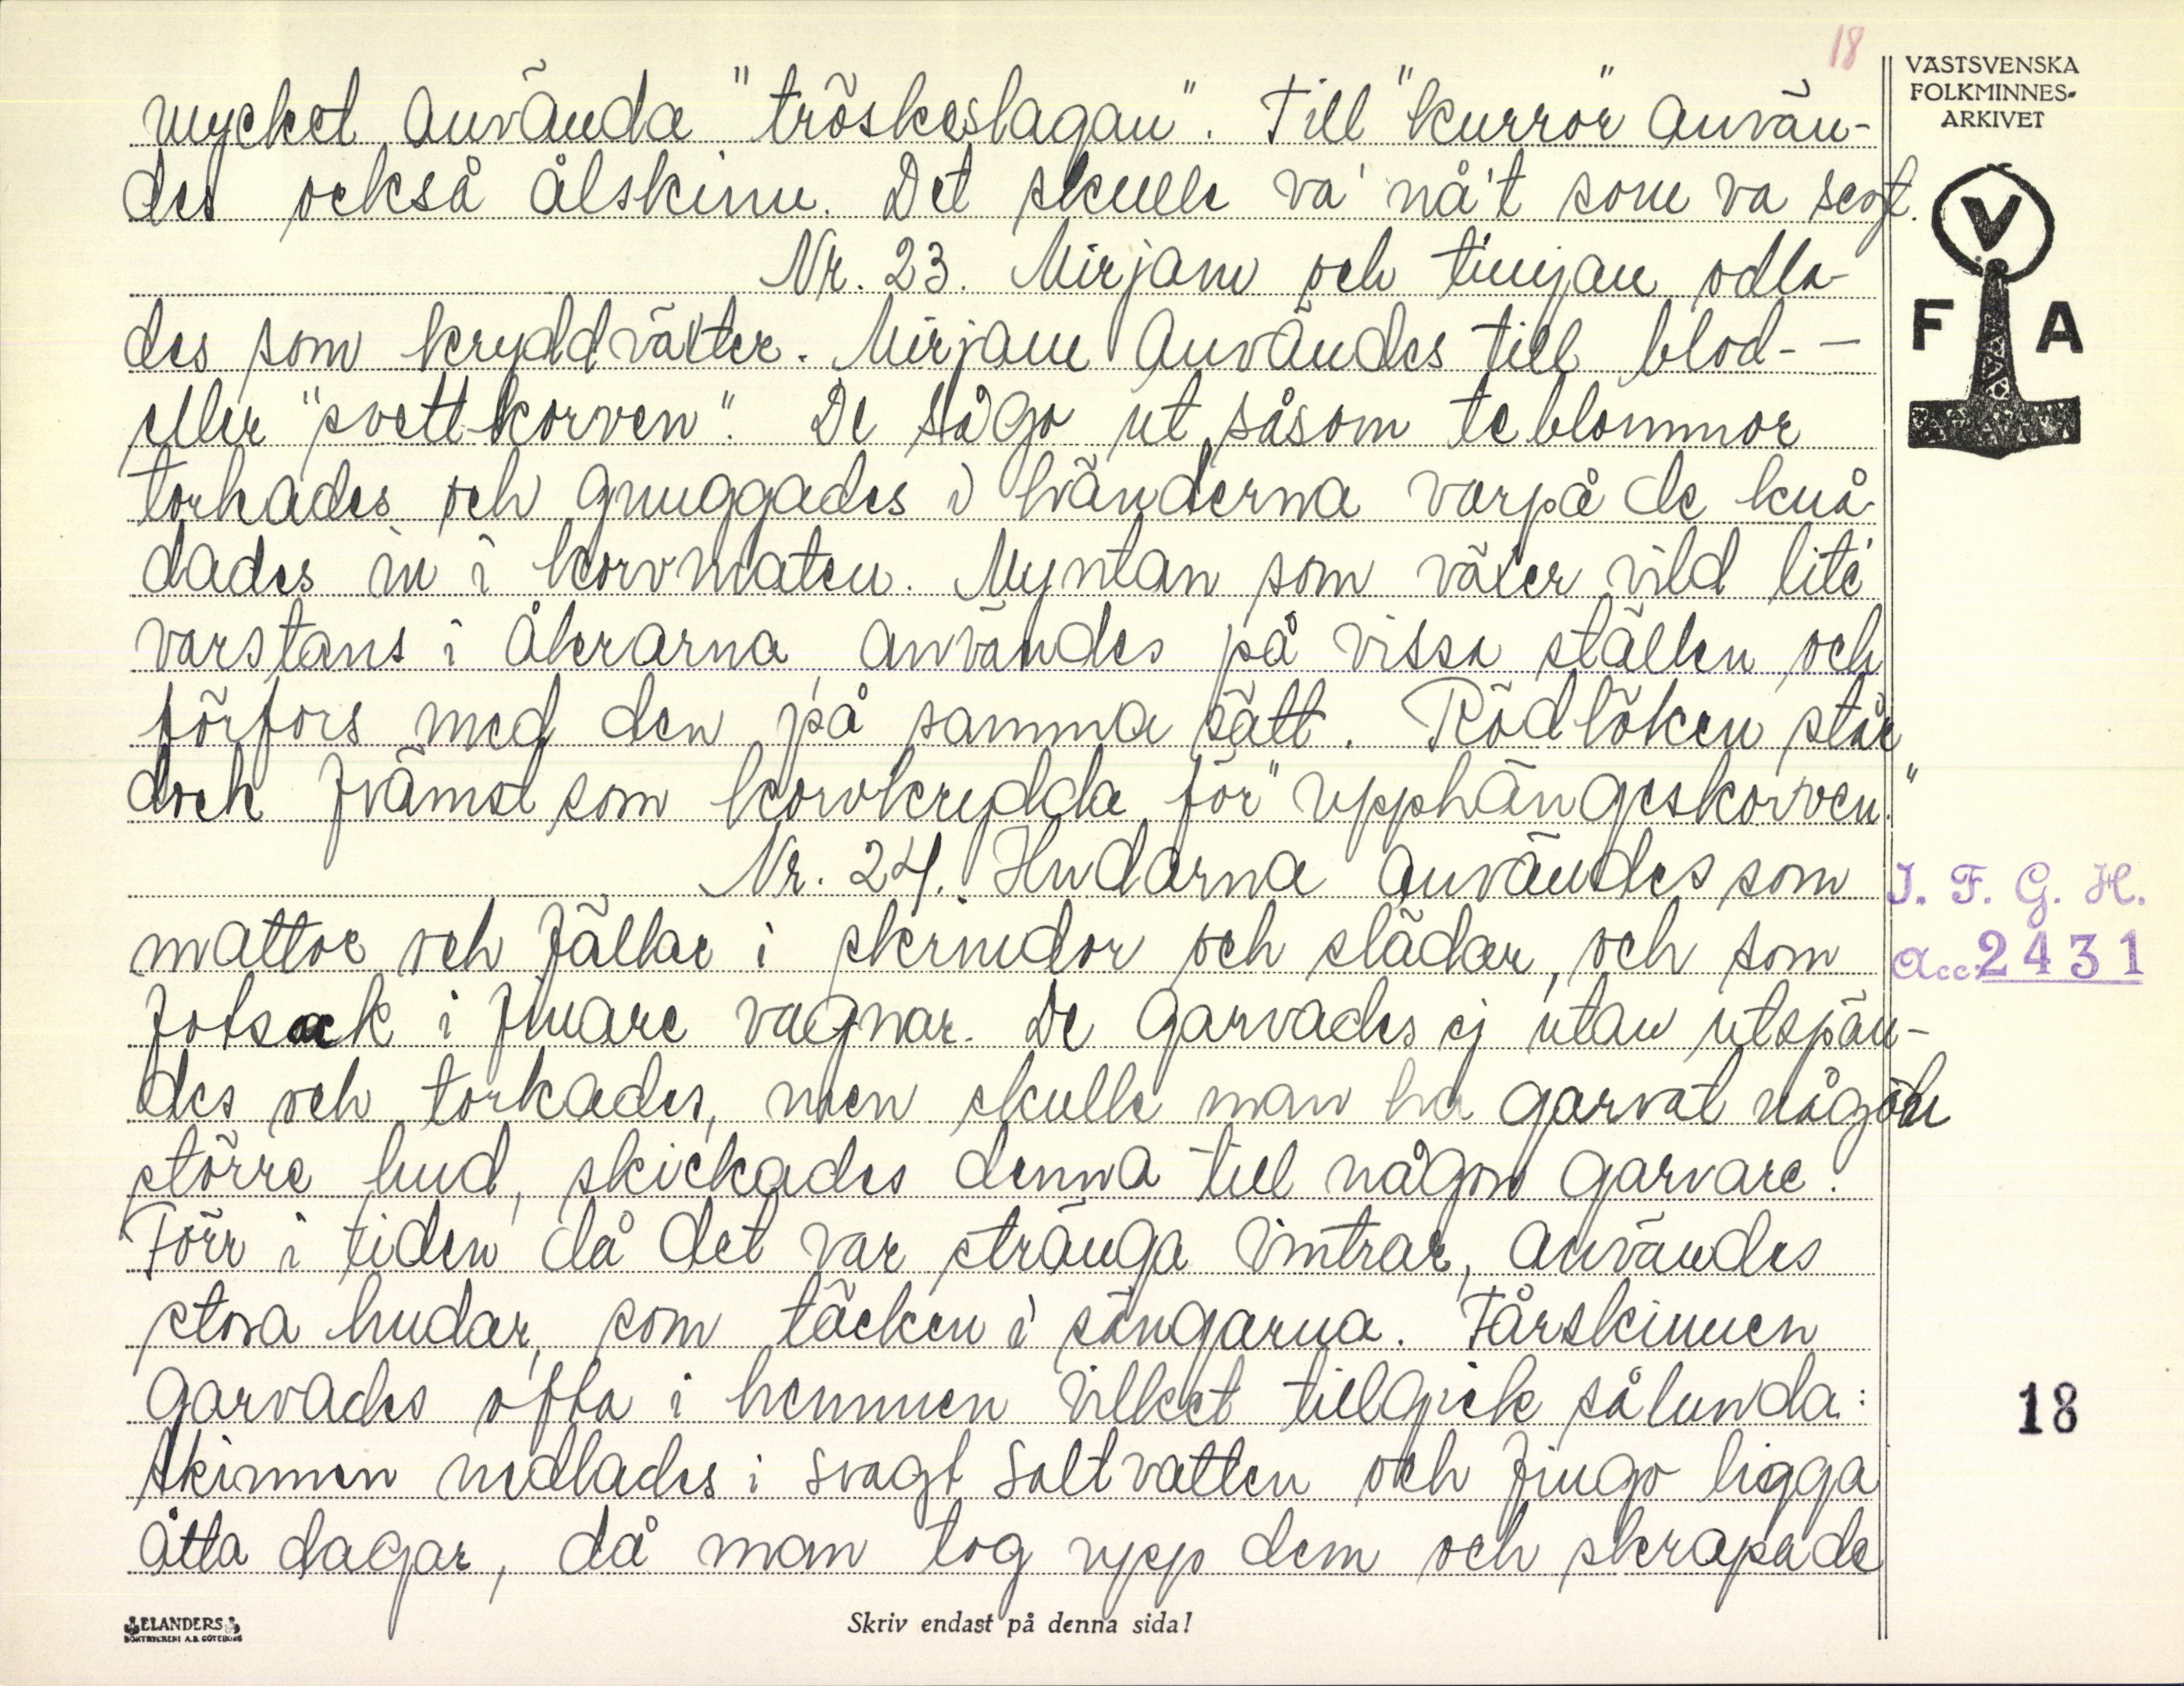 18
VÄSTSVENSKA
FOLKMINNES-
ARKIVET
V
F A
mycket använda "tröskeslagan". Till "kurror" använ-
des också ålskinn. Det skulle va' nå't som va segt.
Nr. 23. Mirjam och timjan odla-
des som kryddväxter. Mirjam användes till blod--
eller "svettkorven". De sågo ut såsom teblommor
torkades och gnuggades i händerna varpå de knå-
dades in i korvmaten. Myntan som växer vild lite'
varstans i åkrarna, användes på vissa ställen och
förfors med den på samma sätt. Rödlöken står
dock främst som korvkrydda för "upphängeskorven."
Nr. 24. Hudarna användes som
mattor och fällar i skrindor och slädar, och som
fotsack i finare vagnar. De garvades ej utan utspän-
des och torkades, men skulle man ha garvat någon
större hud, skickades denna till någon garvare.
Förr i tiden då det var stränga vintrar, användes
stora hudar, som täcken i sängarna. Fårskinnen
garvades ofta i hemmen vilket tillgick sålunda:
Skinnen nedlades i svagt saltvatten och fingo ligga
åtta dagar, då man tog upp dem och skrapade
I. F. G. H.
Acc. 2431
18
ELANDERS
BOKTRYCKERI A.B. GÖTEBORG
Skriv endast på denna sida!